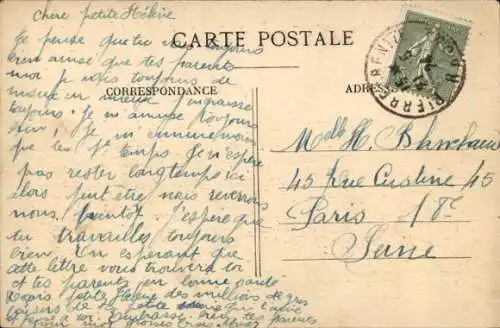 Chere petite Hélène
Je pense que tu vas toujours
bien ainsi que tes parents
moi je vais toujours de
mieux en mieux j'engraisse
toujours. Je m'amuse toujours
je m'ennuie
que les 1er temps. Je n'espère
pas rester longtemps ici
alors peut être nous reverrons
nous bientôt. J'espère que
tu travailles toujours
bien. En esperant que
cette lettre vous trouvera toi
et tes parents en bonne santé
petite Hélène des millions de gros
baisers de ta petite qui t'aime
embrasse tes parents
pour moi grosses bises
CARTE POSTALE
CORRESPONDANCE
ADRESSE
Mlle H. Blanchard
45 Rue Custine 45
Paris 18e
Seine